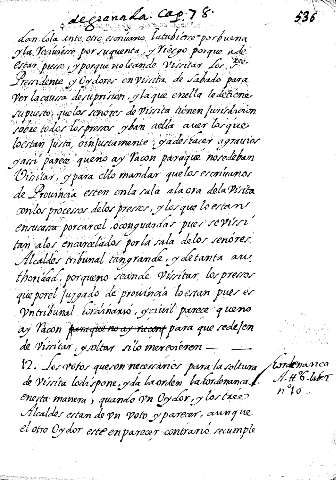 de granada. Cap. 78.
536
don, Cola ante, otro escriuano lo tubiere por buena
y la Veciuiere por su quenta, y Riesgo porque a de
estar presso, y porque no se an de Vissitar los
Pressidente y Oydores en Vissita de sabado para
Ver la causa de su prision, y la que en ella le detiene
supuesto, que los señores de Vissita tienen jurisdicion
sobre todos los pressos y ban a ella a ver los que
lo estan justa, o injustamente, y a deshacer agrauios
y assi parece que no ay Raçon para que no se deban
Vissitar, y para ello mandar que los escriuanos
de Prouincia esten en la sala a la ora de la Vissita
con los processos de los pressos, y los que lo estan
en su casa por carcel, o con guardas pues se vissi
tan a los encarcelados por la sala de los señores
Alcaldes tribunal tan grande, y de tanta au
thoridad, porque no se an de Vissitar los pressos
que por el juzgado de prouincia lo estan pues es
Vn tribunal hordinario, y ciuil parece que no
ay Raçon para que se dejen
de Vissitar, y soltar si lo merecieren
12. Los votos que son necesarios para la soltura
de Vissita lo dispone, y da la orden la hordenança
en esta manera, quando vn Oydor, y los tres
Alcaldes estan de vn voto y parecer, aunque
el otro Oydor esté en parecer contrario se cumple
hordenanca
n.º 10.